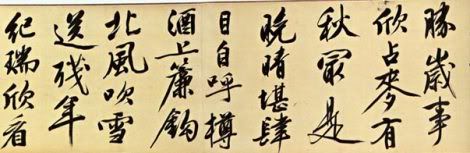 勝歲事
欣占麥有
秋最是
晚晴堪肆
目自呼樽
酒上簾鉤
北風吹雪
送殘年
紀瑞欣看